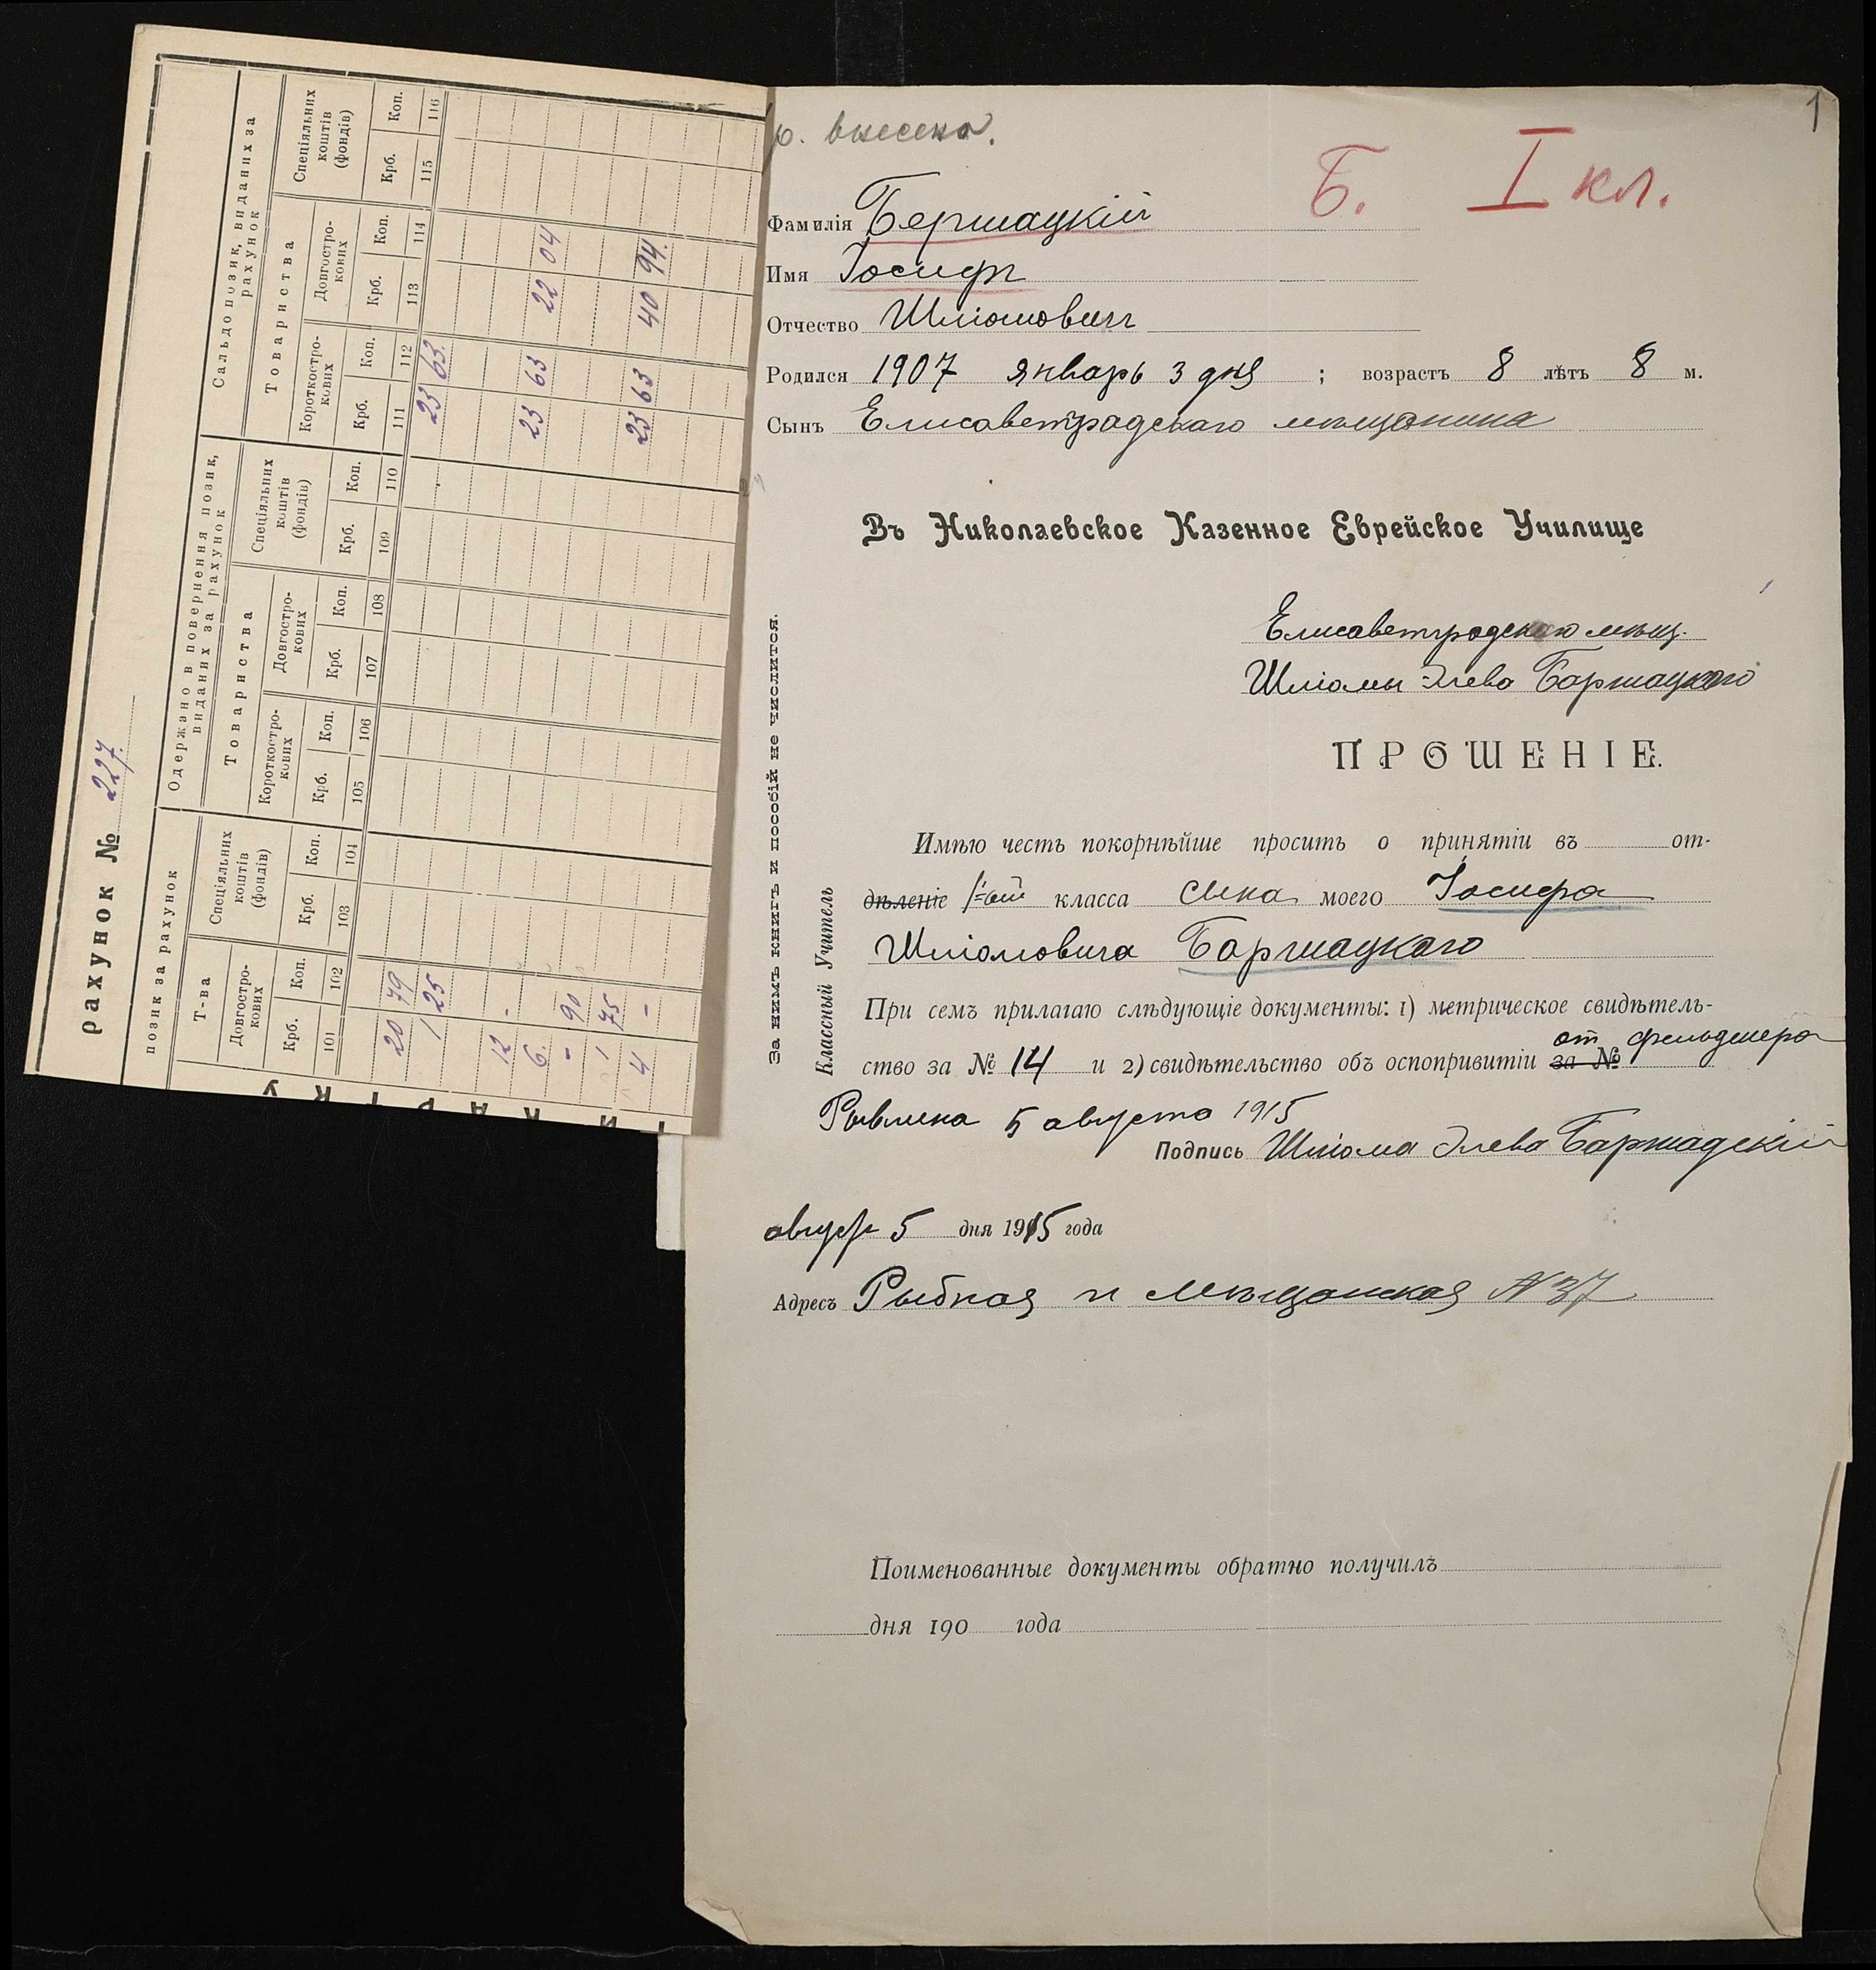 рахунок № 227.
позик за рахунок
Одержано в повернення позик, виданих за рахунок
Сальдо позик, виданих за рахунок
Т-ва
Спеціяльних коштів (фондів)
Товариства
Спеціяльних коштів (фондів)
Товариства
Спеціяльних коштів (фондів)
Довгостро-кових
Короткостро-кових
Довгостро-кових
Короткостро-кових
Довгостро-кових
Крб. Коп. Крб. Коп. Крб. Коп. Крб. Коп. Крб. Коп. Крб. Коп. Крб. Коп. Крб. Коп.
101 102 103 104 105 106 107 108 109 110 111 112 113 114 115 116
23 63.
20 79
1 25
23 63 22 04
12 -
6.
- 90
23 63 40 94.
1 75
4 -
1
р. внесена.
Б. I кл.
Фамилія Бершацкій
Имя Іосифъ
Отчество Шліомовичъ
Родился 1907 январь 3 дня ; возрастъ 8 лѣтъ 8 м.
Сынъ Елисаветградскаго мѣщанина
Въ Николаевское Казенное Еврейское Училище
Елисаветградскаго мѣщ.
Шліомы Элева Баршацкого
ПРОШЕНІЕ.
Имѣю честь покорнѣйше просить о принятіи въ от-
дѣленіе 1-ый класса сына моего Іосифа
Шліомовича Баршацкаго
При семъ прилагаю слѣдующіе документы: 1) метрическое свидѣтель-
от фельдшера
ство за № 14 и 2) свидѣтельство объ оспопривитіи за №
Рывлина 5 августа 1915
Подпись Шліома Элева Баршадскій
август 5 дня 1915 года
Адресъ Рыбная и Мѣщанская № 37
Поименованные документы обратно получилъ
дня 190 года
За нимъ книгъ и пособій не числится.
Классный Учитель